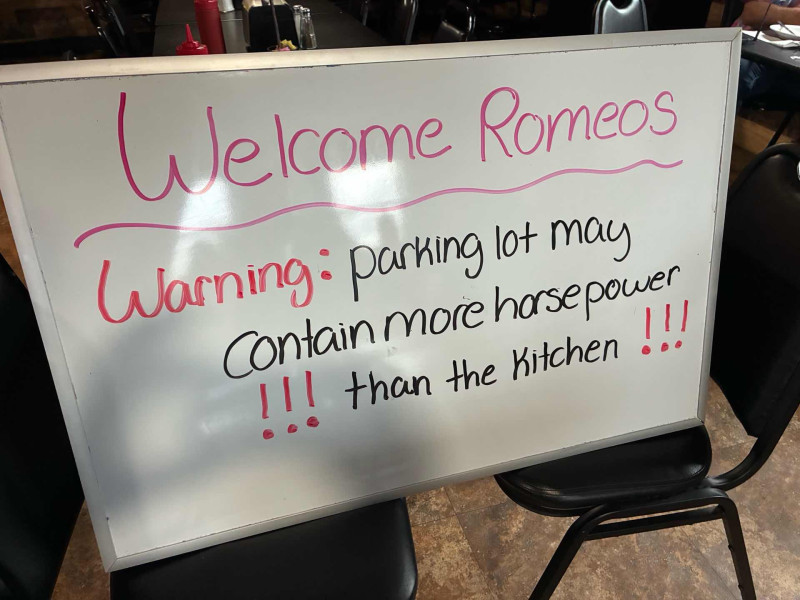 Welcome Romeos
Warning: parking lot may
Contain more horsepower
!!! than the Kitchen !!!